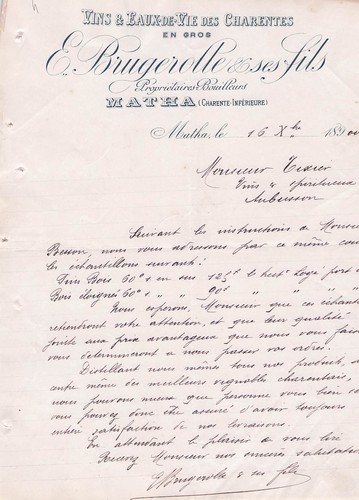 VINS & EAUX-DE-VIE DES CHARENTES
EN GROS
E. Brugerolle & ses fils
Propriétaires Bouilleurs
MATHA (CHARENTE-INFÉRIEURE)
Matha, le 16 Xbre 189
Monsieur Texier
Vins & spiritueux
Aubusson
Suivant les instructions de Monsieur
Besson, nous vous adressons par ce même cour
les échantillons suivants:
Fins Bois 60° s en sus 125f l'hect logé port
Bois éloignés 60° s " " 90f " "
Nous espérons, Monsieur que ces échant
retiendront votre attention, et que leur qualité
jointe aux prix avantageux que nous vous faiso
vous détermineront à nous passer vos ordres.
Distillant nous mêmes tous nos produits, a
centre même des meilleurs vignobles charentais,
nous pouvons mieux que personne vous bien se
vous pouvez donc être assuré d'avoir toujours
entière satisfaction de nos livraisons.
En attendant le plaisir de vous lire
Recevez Monsieur nos sincères salutations
E Brugerolle & ses fils